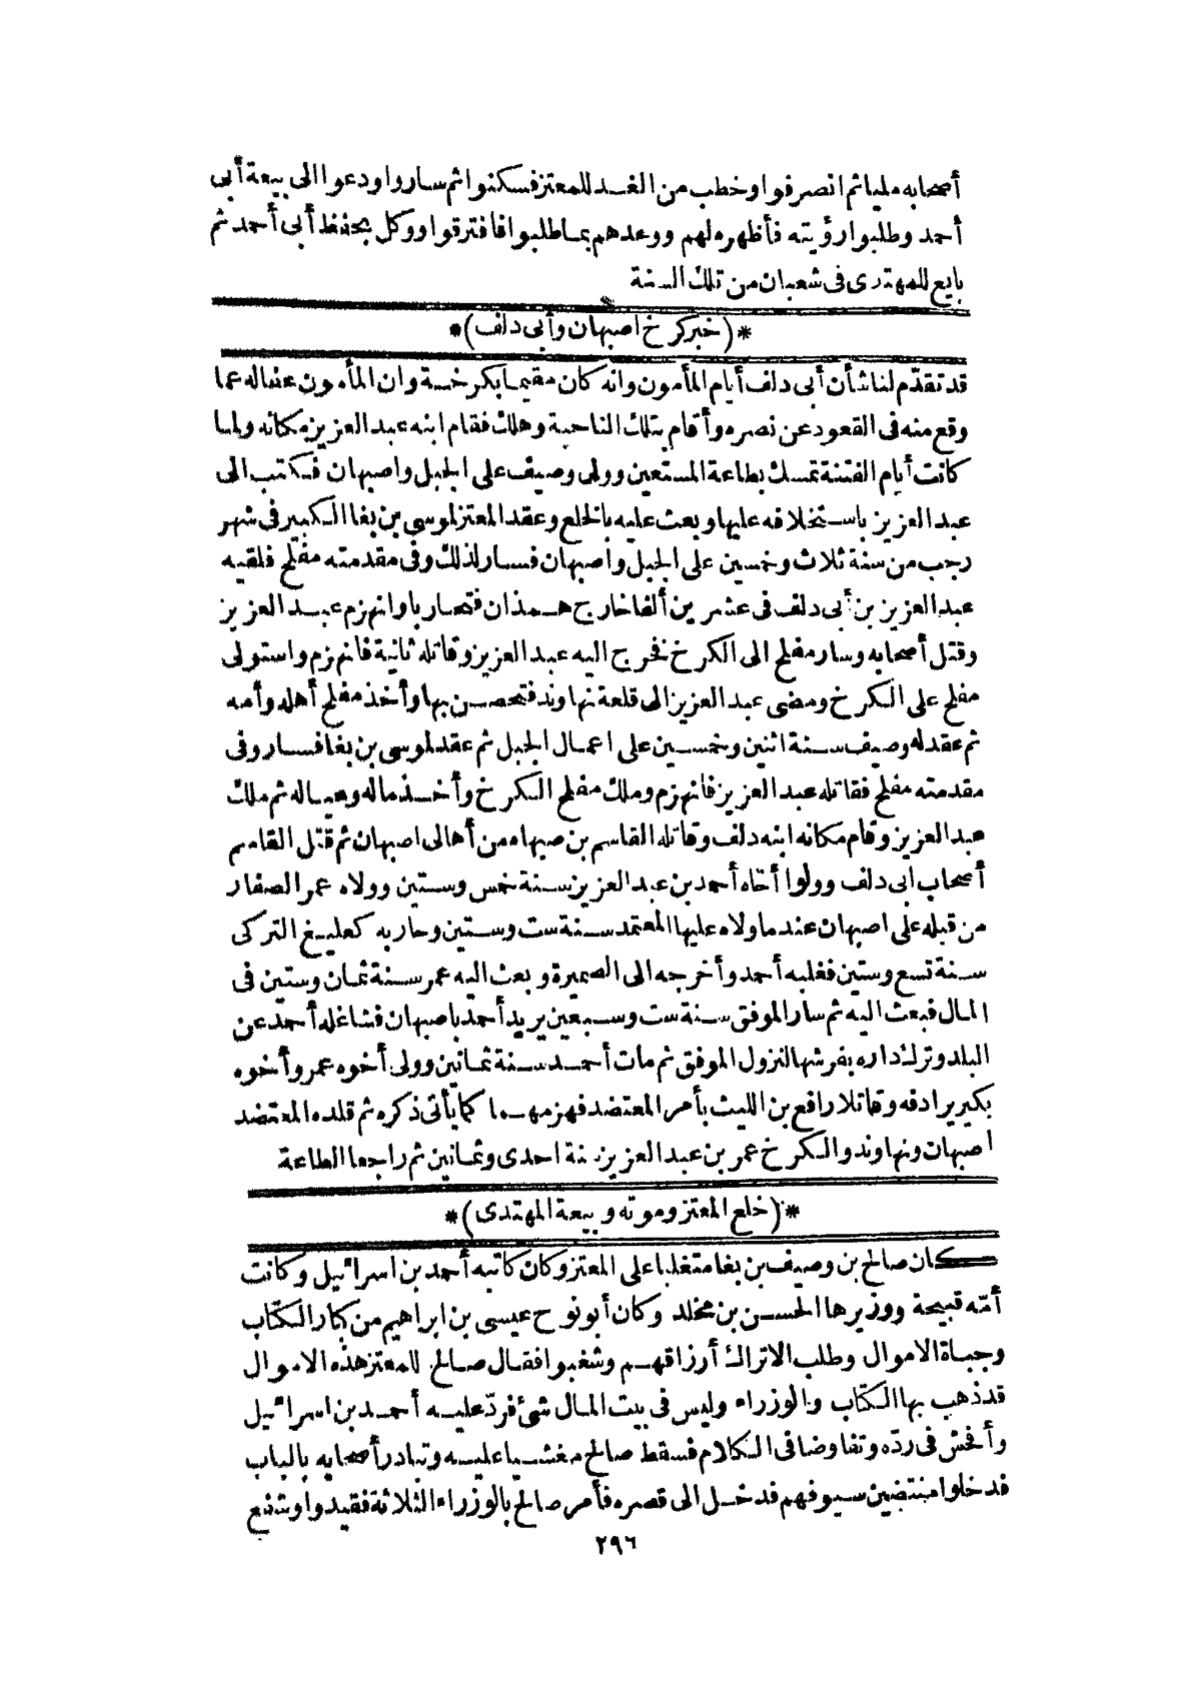 أصحابه مليا ثم انصرفوا وخطب من الغد للمعتز فسكنوا ثم ساروا ودعوا الى بيعة أبى
أحمد وطلبوا رؤيته فأظهره لهم ووعدهم بما طلبوا فافترقوا ووكل بحفظ أبى أحمد ثم
بايع للمهتدى فى شعبان من تلك السنة
*(خبر كرخ اصبهان وأبى دلف)*
قد تقدّم لنا شأن أبى دلف أيام المأمون وانه كان مقيما بكرخسة وان المأمون عفا له عما
وقع منه فى القعود عن نصره وأقام بتلك الناحية وهلك فقام ابنه عبد العزيز مكانه ولما
كانت أيام الفتنة تمسك بطاعة المستعين وولى وصيف على الجبل واصبهان فكتب الى
عبد العزيز باستخلافه عليها وبعث عليه بالخلع وعقد المعتز لموسى بن بغا الكبير فى شهر
رجب من سنة ثلاث وخمسين على الجبل واصبهان فسار لذلك وفى مقدمته مفلح فلقيه
عبد العزيز بن أبى دلف فى عشرين ألفا خارج همذان فتحاربا وانهزم عبد العزيز
وقتل أصحابه وسار مفلح الى الكرخ فخرج اليه عبد العزيز وقاتله ثانية فانهزم واستولى
مفلح على الكرخ ومضى عبد العزيز الى قلعة نهاوند فتحصن بها وأخذ مفلح أهله وأمه
ثم عقد له وصيف سنة اثنين وخمسين على اعمال الجبل ثم عقد لموسى بن بغا فسار وفى
مقدمته مفلح فقاتله عبد العزيز فانهزم وملك مفلح الكرخ وأخذ ماله وعياله ثم ملك
عبد العزيز وقام مكانه ابنه دلف وقاتله القاسم بن صبهاه من أهالى اصبهان ثم قتل القاسم
أصحاب أبى دلف وولوا أخاه أحمد بن عبد العزيز سنة خمس وستين وولاه عمر الصفار
من قبله على اصبهان عند ما ولاه عليها المعتمد سنة ست وستين وحاربه كعليغ التركى
سنة تسع وستين فغلبه أحمد وأخرجه الى الصميرة وبعث اليه عمر سنة ثمان وستين فى
المال فبعث اليه ثم سار الموفق سنة ست وسبعين يريد أحمد باصبهان فشاغله أحمد عن
البلد وترك داره بفرشها لنزول الموفق ثم مات أحمد سنة ثمانين وولى أخوه عمر وأخوه
بكير يرادفه وقاتلا رافع بن الليث بأمر المعتضد فهزمهما كما يأتى ذكره ثم قلده المعتضد
اصبهان ونهاوند والكرخ عمر بن عبد العزيز سنة احدى وثمانين ثم راجعا الطاعة
*(خلع المعتز وموته وبيعة المهتدى)*
كان صالح بن وصيف بن بغا متغلبا على المعتز وكان كاتبه أحمد بن اسرائيل وكانت
أمّه قبيحة ووزيرها الحسن بن مخلد وكان أبو نوح عيسى بن ابراهيم من كبار الكتّاب
وجباة الاموال وطلب الاتراك أرزاقهم وشغبوا فقال صالح للمعتز هذه الاموال
قد ذهب بها الكتّاب والوزراء وليس فى بيت المال شئ فردّ عليه أحمد بن اسرائيل
وأفحش فى ردّه وتفاوضا فى الكلام فسقط صالح مغشيا عليه وتبادر أصحابه بالباب
فدخلوا منتضين سيوفهم فدخل الى قصره فأمر صالح بالوزراء الثلاثة فقيدوا وشفع
٢٩٦